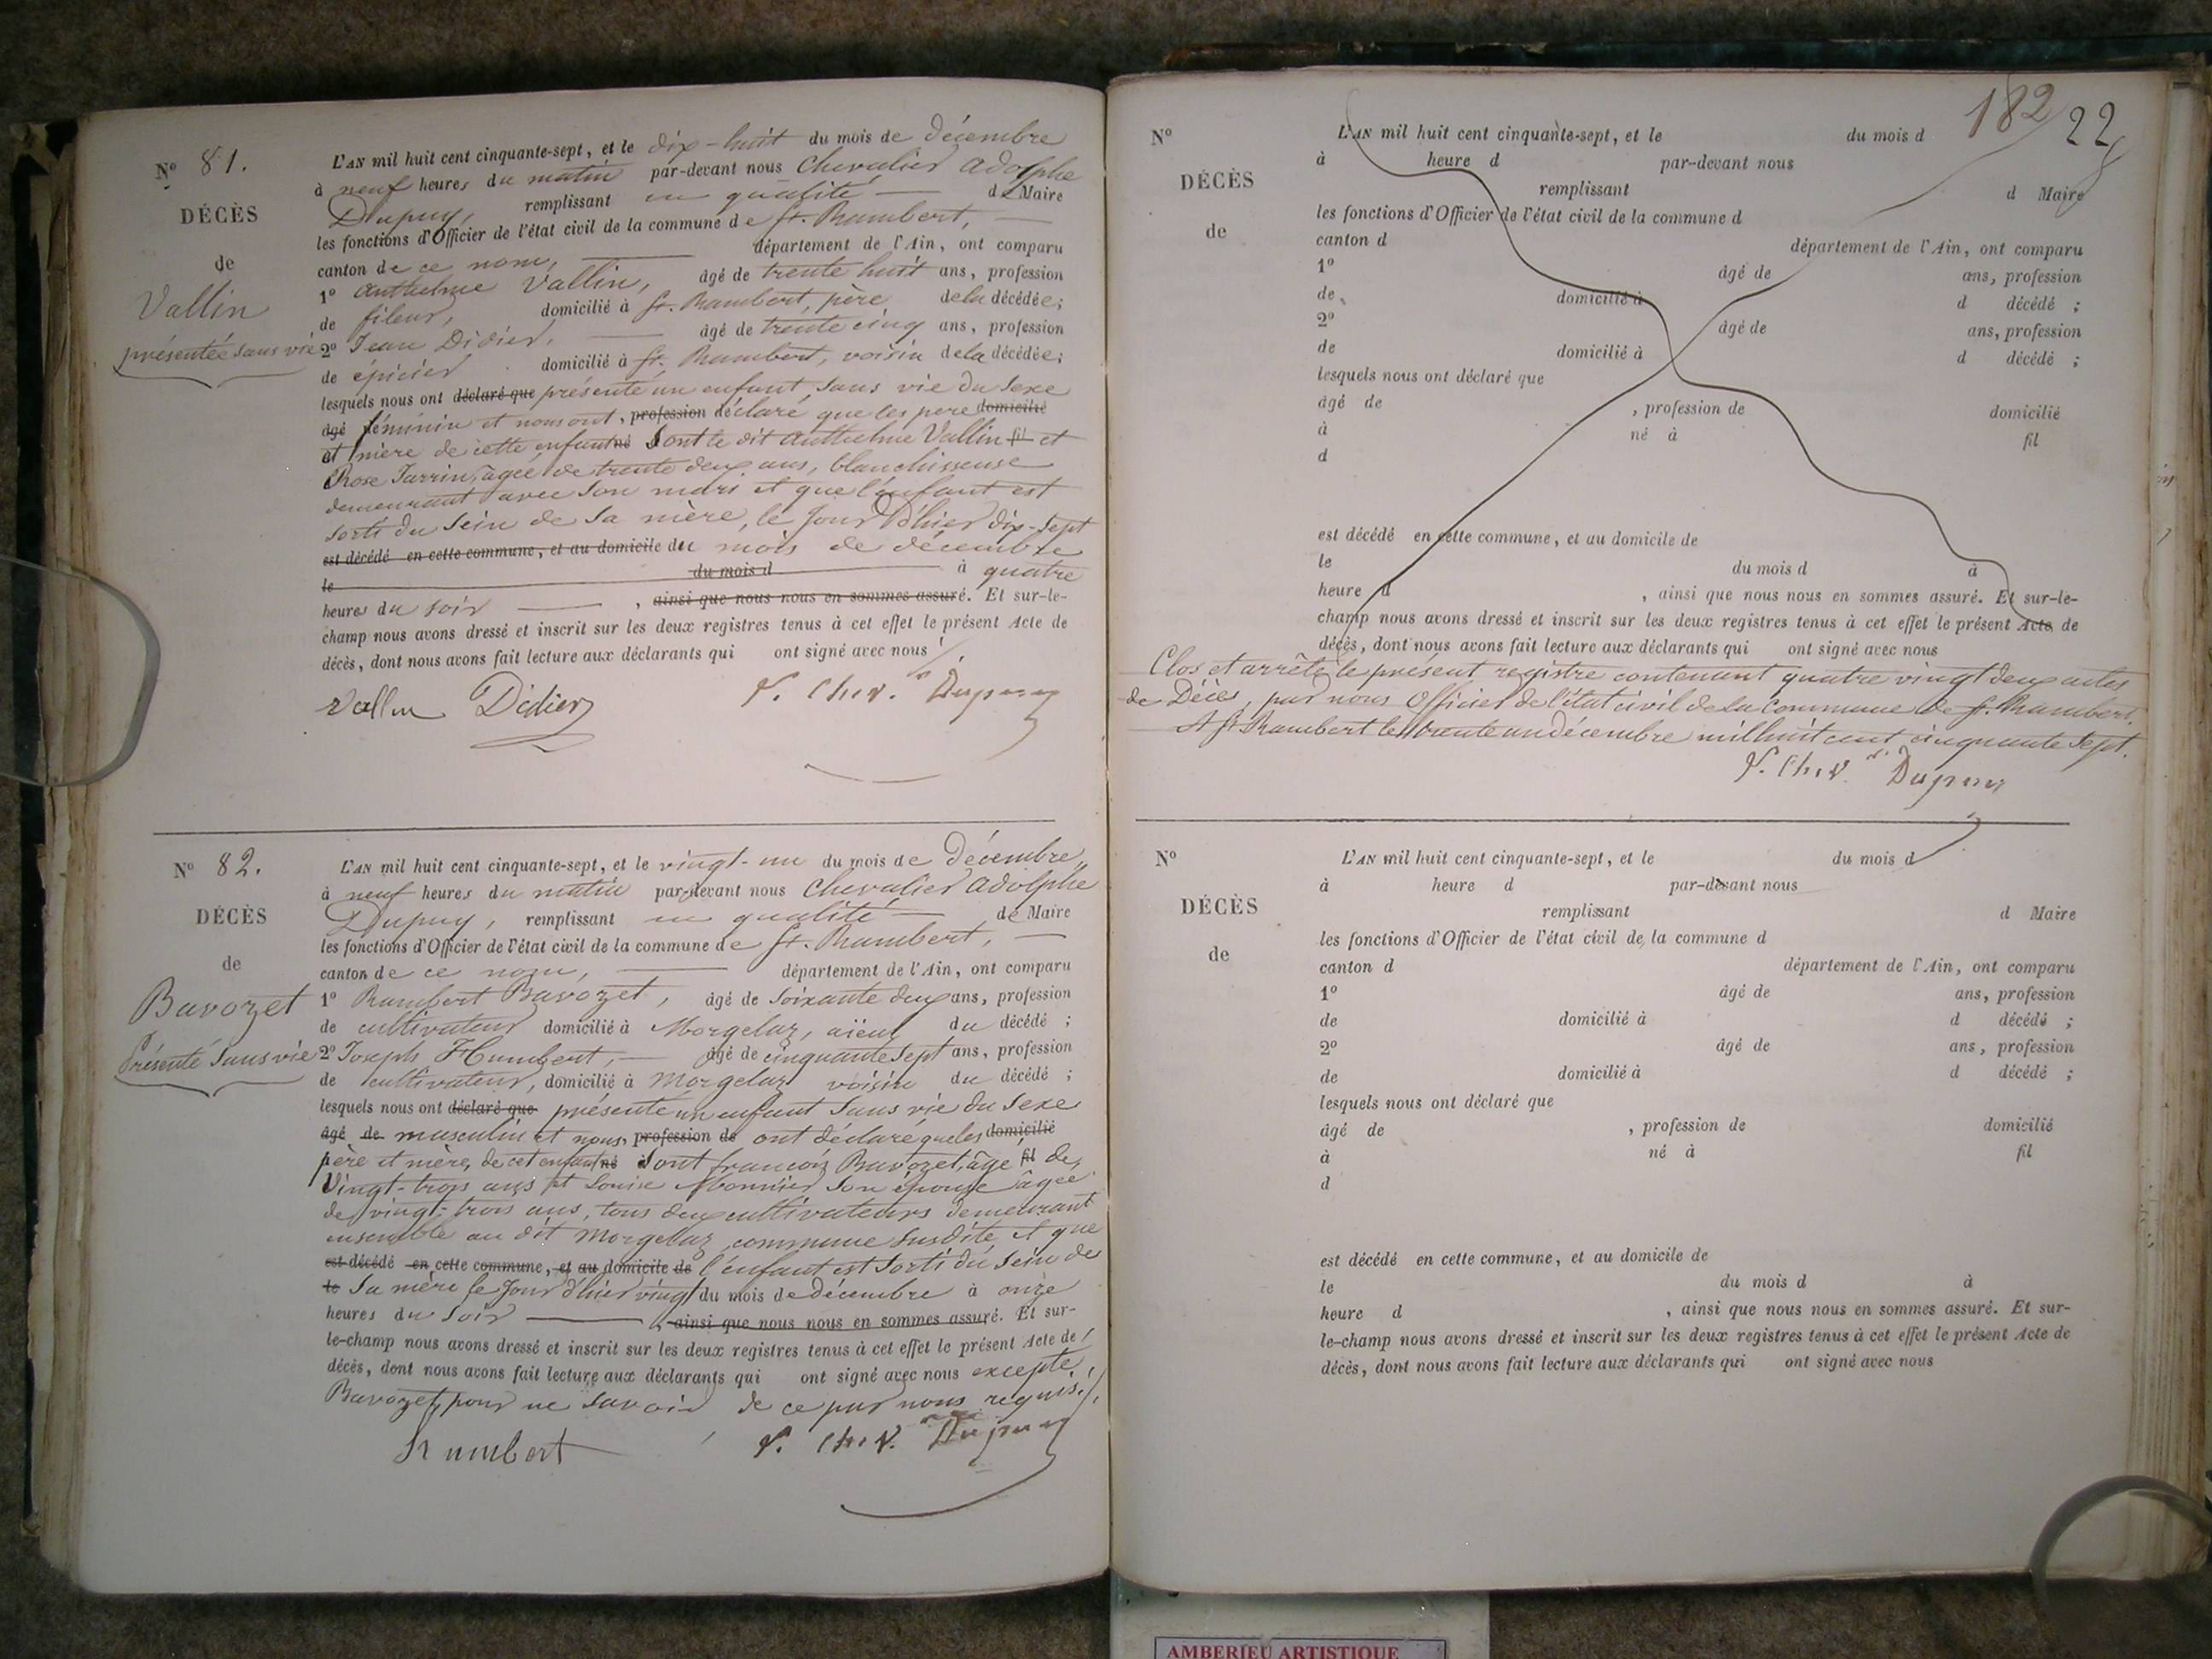 Nº 81.
DÉCÈS
de
Vallin
présentée sans vie
L'AN mil huit cent cinquante-sept, et le dix-huit du mois de décembre
à neuf heures du matin par-devant nous Chevalier Adolphe
Dupuy, remplissant en qualité de Maire
les fonctions d'Officier de l'état civil de la commune de St. Rambert,
canton de ce nom, département de l'Ain, ont comparu
1º Anthelme Vallin, âgé de trente huit ans, profession
de fileur, domicilié à St. Rambert, père de la décédée;
2º Jean Didier, âgé de trente cinq ans, profession
de épicier domicilié à St. Rambert, voisin de la décédée;
lesquels nous ont déclaré que présenté un enfant sans vie du sexe
âgé féminin et nous ont, profession déclaré que les père domicilié
et mère de cette enfant né sont le dit Anthelme Vallin fil et
Rose Jarrin, âgée de trente deux ans, blanchisseuse
demeurant avec son mari et que l'enfant est
sorti du sein de sa mère, le jour d'hier dix-sept
est décédé en cette commune, et au domicile du mois de décembre
le du mois d à quatre
heures du soir , ainsi que nous nous en sommes assuré. Et sur-le-
champ nous avons dressé et inscrit sur les deux registres tenus à cet effet le présent Acte de
décès, dont nous avons fait lecture aux déclarants qui ont signé avec nous
Vallin Didier Chev. Dupuy
Nº 82.
DÉCÈS
de
Bavozet
Présenté sans vie
L'AN mil huit cent cinquante-sept, et le vingt-un du mois de Décembre,
à neuf heures du matin par-devant nous Chevalier Adolphe
Dupuy, remplissant en qualité de Maire
les fonctions d'Officier de l'état civil de la commune de St. Rambert,
canton de ce nom, département de l'Ain, ont comparu
1º Rambert Bavozet, âgé de soixante deux ans, profession
de cultivateur domicilié à Morgelaz, aïeul du décédé ;
2º Joseph Humbert, âgé de cinquante sept ans, profession
de cultivateur, domicilié à Morgelaz voisin du décédé ;
lesquels nous ont déclaré que présenté un enfant sans vie du sexe
âgé de masculin et nous, profession de ont déclaré que les domicilié
père et mère, de cet enfant né sont françois Bavozet, âgé fil de
Vingt-trois ans et Louise Monnier son épouse âgée
de vingt-trois ans, tous deux cultivateurs demeurant
ensemble au dit Morgelaz commune susdite, et que
est décédé en cette commune, et au domicile de l'enfant est sorti du sein de
le sa mère le jour d'hier vingt du mois de décembre à onze
heures du soir , ainsi que nous nous en sommes assuré. Et sur-
le-champ nous avons dressé et inscrit sur les deux registres tenus à cet effet le présent Acte de
décès, dont nous avons fait lecture aux déclarants qui ont signé avec nous excepté
Bavozet, pour ne savoir de ce par nous requis.
Humbert Chev. Dupuy
182 22
Nº
DÉCÈS
de
L'AN mil huit cent cinquante-sept, et le du mois d
à heure d par-devant nous
remplissant d Maire
les fonctions d'Officier de l'état civil de la commune d
canton d département de l'Ain, ont comparu
1º âgé de ans, profession
de domicilié à d décédé ;
2º âgé de ans, profession
de domicilié à d décédé ;
lesquels nous ont déclaré que
âgé de , profession de domicilié
à né à fil
d
est décédé en cette commune, et au domicile de
le du mois d à
heure d , ainsi que nous nous en sommes assuré. Et sur-le-
champ nous avons dressé et inscrit sur les deux registres tenus à cet effet le présent Acte de
décès, dont nous avons fait lecture aux déclarants qui ont signé avec nous
Clos et arrêté le présent registre contenant quatre vingt deux actes
de Décès, par nous Officier de l'état civil de la Commune de St. Rambert.
A St. Rambert le trente un décembre mil huit cent cinquante sept.
Chev. Dupuy
Nº
DÉCÈS
de
L'AN mil huit cent cinquante-sept, et le du mois d
à heure d par-devant nous
remplissant d Maire
les fonctions d'Officier de l'état civil de la commune d
canton d département de l'Ain, ont comparu
1º âgé de ans, profession
de domicilié à d décédé ;
2º âgé de ans, profession
de domicilié à d décédé ;
lesquels nous ont déclaré que
âgé de , profession de domicilié
à né à fil
d
est décédé en cette commune, et au domicile de
le du mois d à
heure d , ainsi que nous nous en sommes assuré. Et sur-
le-champ nous avons dressé et inscrit sur les deux registres tenus à cet effet le présent Acte de
décès, dont nous avons fait lecture aux déclarants qui ont signé avec nous
AMBERIEU ARTISTIQUE